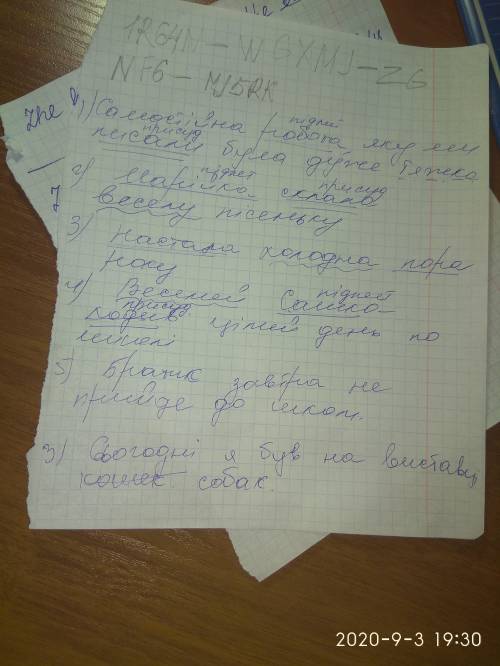 1R64N-WGXMJ-Z6
NF6-MJ5RK
The
1) Самостійна підмет робота яку ми
присуд писали була дуже тяжка
2) Марійка підмет склала присуд
веселу пісеньку
3) Настала холодна пора
року
4) Веселий Сашко підмет
присуд ходив цілий день по
школі
5) Братик завтра не
прийде до школи.
3) Сьогодні я був на виставці
кошек собак.
2020-9-3 19:30